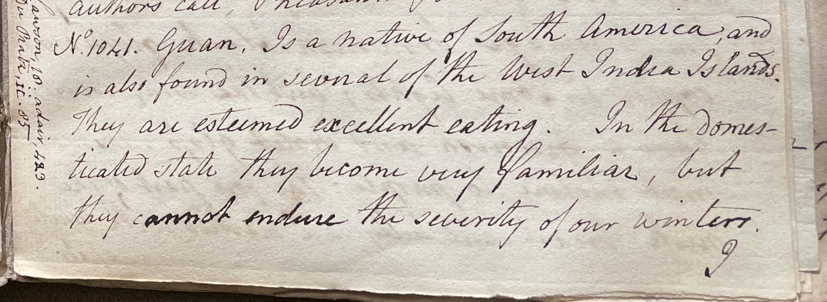 authors call, Pheasant
No. 1041. Guan. Is a native of South America, and
is also found in several of the West India Islands.
They are esteemed excellent eating. In the domes-
ticated state they become very familiar, but
they cannot endure the severity of our winters.
I
Lawson, 18. adair, 423.
Du Pratz, ii. 85